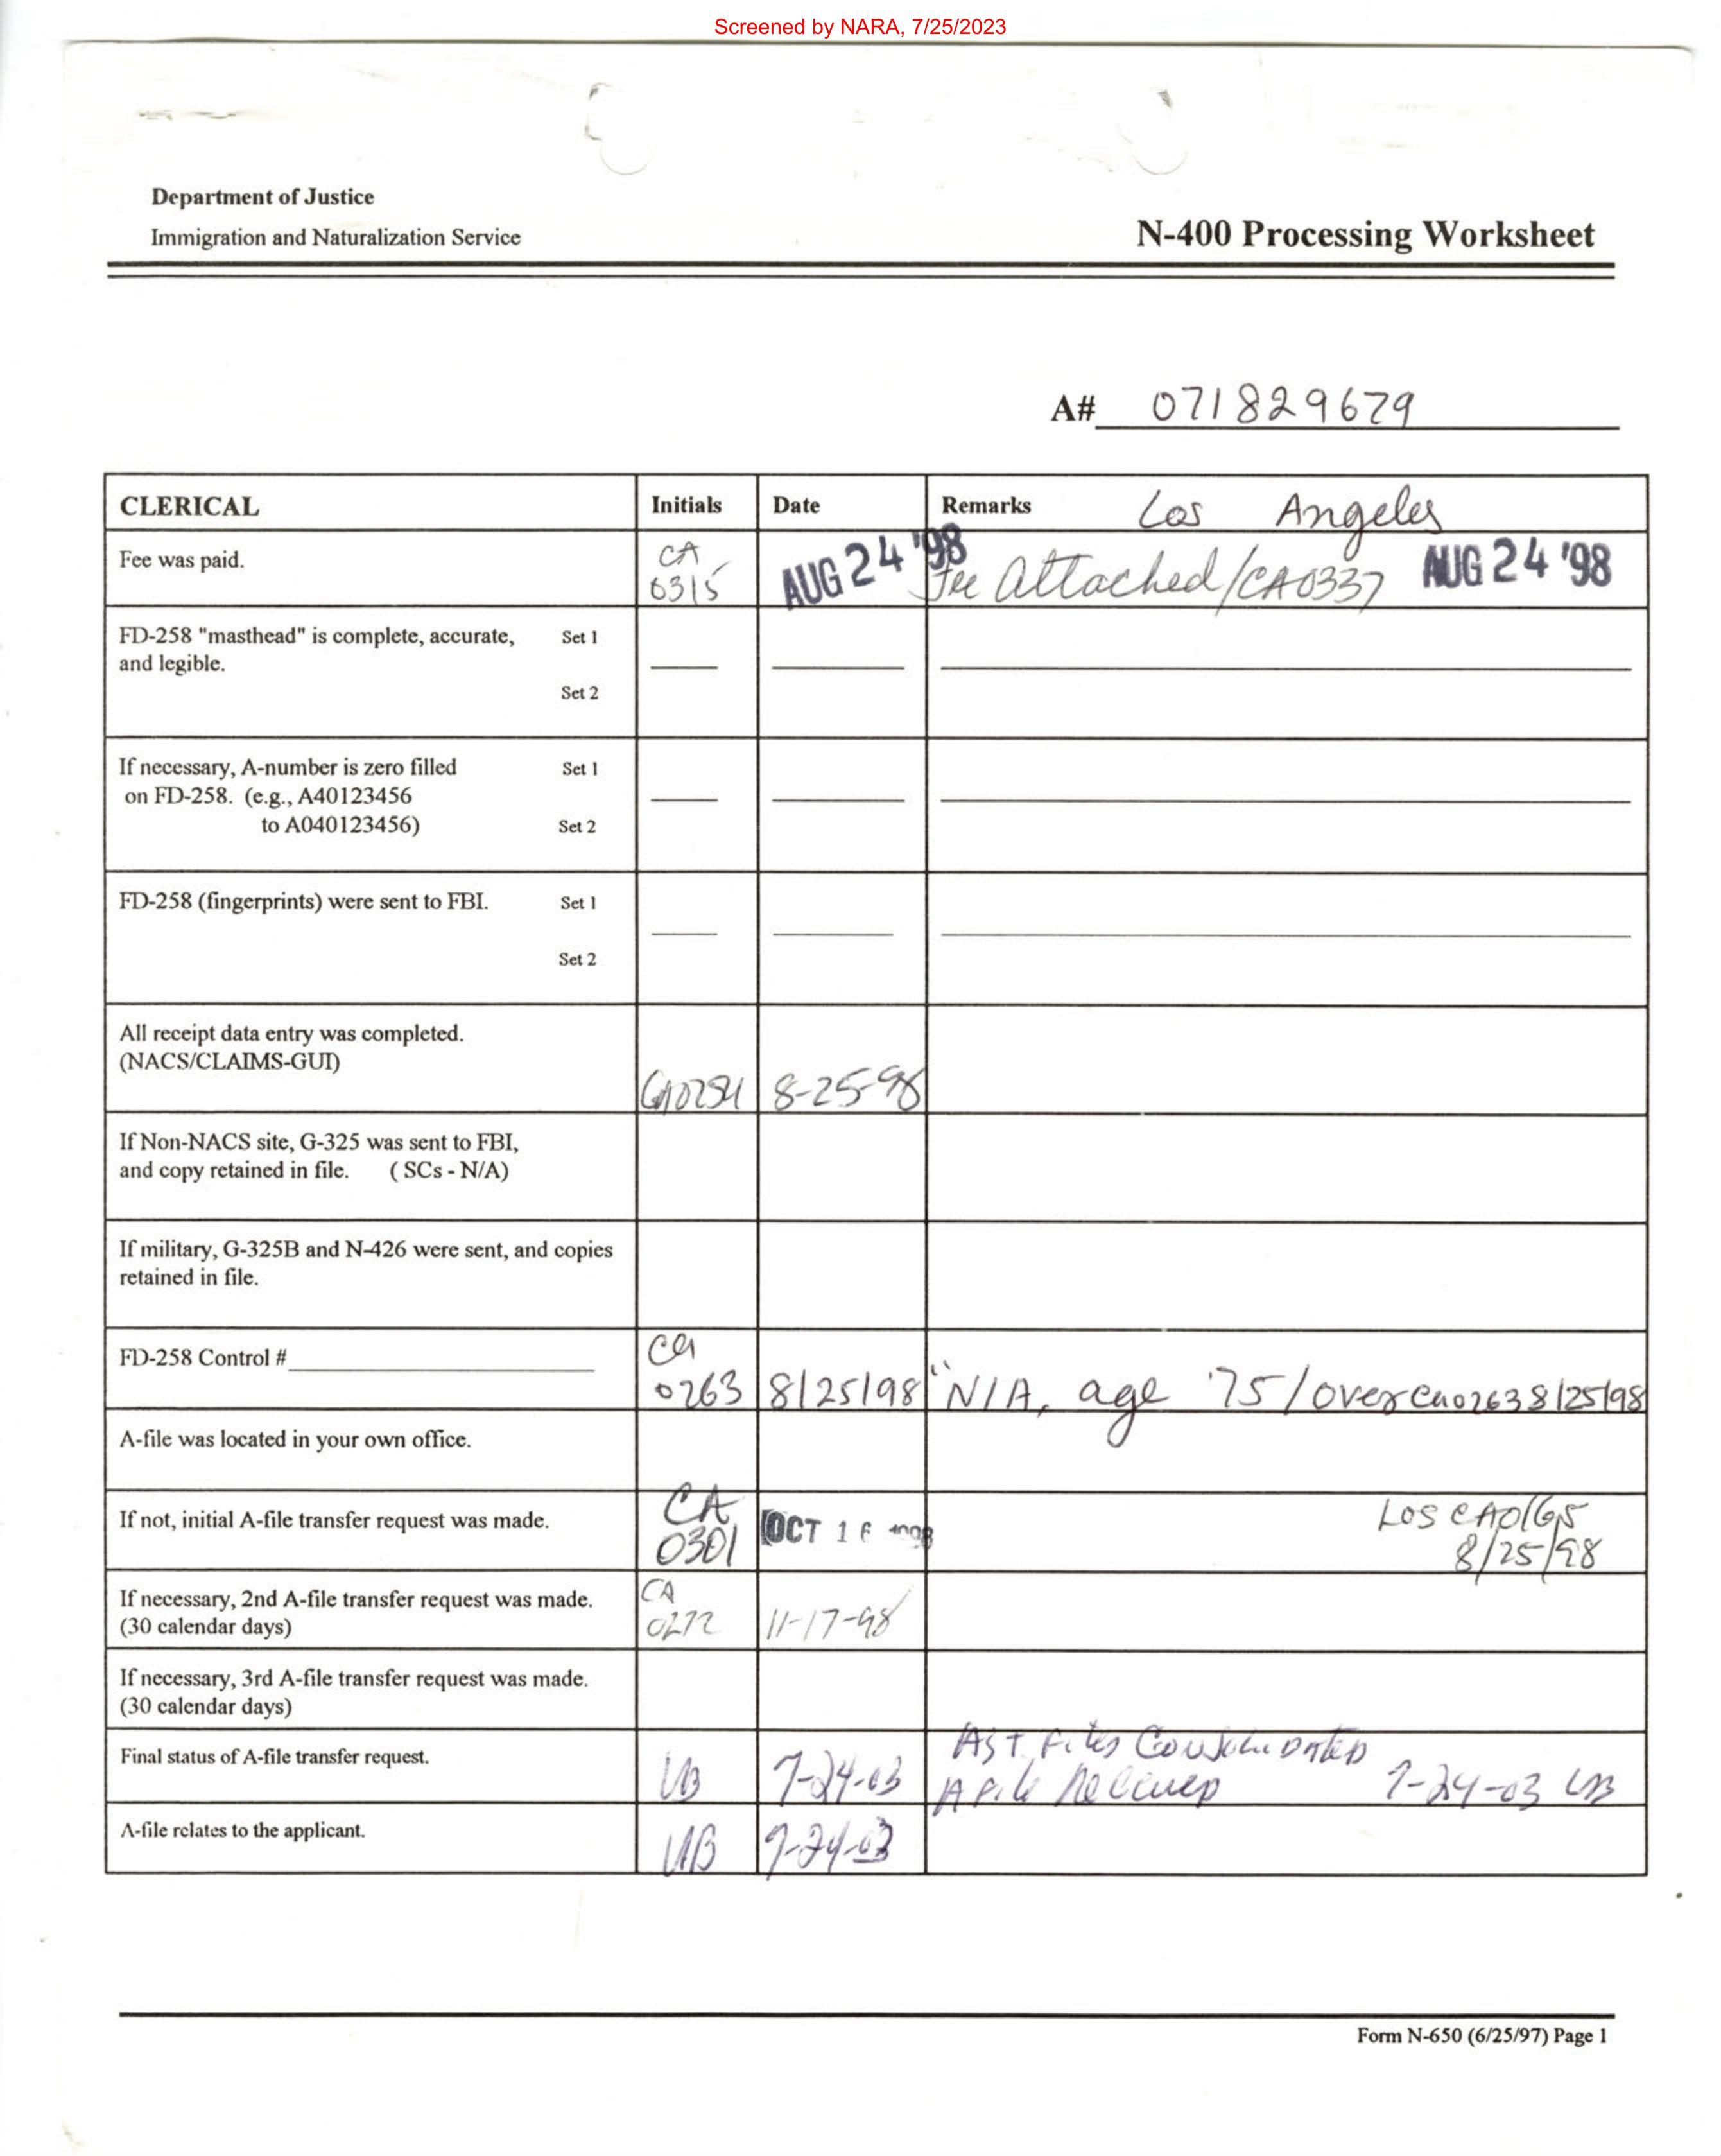 Screened by NARA, 7/25/2023
Department of Justice
Immigration and Naturalization Service
N-400 Processing Worksheet
A# 071829679
CLERICAL Initials Date Remarks Los Angeles
Fee was paid. CA 0315 AUG 24 '98 Fee Attached/CA0337 AUG 24 '98
FD-258 "masthead" is complete, accurate, Set 1
and legible.
Set 2
If necessary, A-number is zero filled Set 1
on FD-258. (e.g., A40123456
to A040123456) Set 2
FD-258 (fingerprints) were sent to FBI. Set 1
Set 2
All receipt data entry was completed.
(NACS/CLAIMS-GUI)
8-25-98
If Non-NACS site, G-325 was sent to FBI,
and copy retained in file. ( SCs - N/A)
If military, G-325B and N-426 were sent, and copies
retained in file.
FD-258 Control # CA
0263 8/25/98 "N/A, age 75/over CA0263 8/25/98
A-file was located in your own office.
If not, initial A-file transfer request was made. CA 0301 OCT 16 1998 LOS CA0165
8/25/98
If necessary, 2nd A-file transfer request was made. CA
(30 calendar days) 0272 11-17-98
If necessary, 3rd A-file transfer request was made.
(30 calendar days)
Final status of A-file transfer request. 7-24-03 A&T Files Consolidated
A File Received 7-24-03
A-file relates to the applicant. 7-24-03
Form N-650 (6/25/97) Page 1